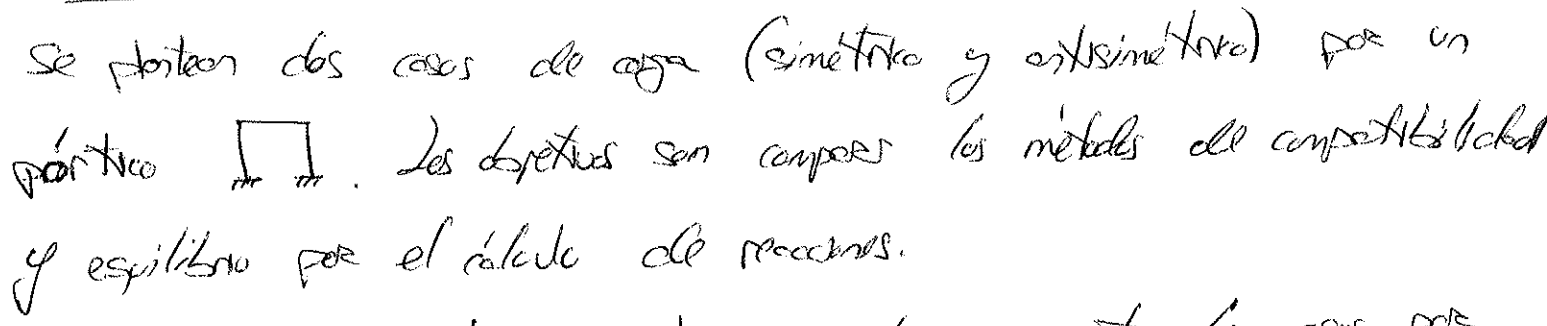 Se plantean dos casos de carga (simétrico y antisimétrico) por un
pórtico . Los objetivos son comparar los métodos de compatibilidad
y equilibrio por el cálculo de reacciones.
casos por